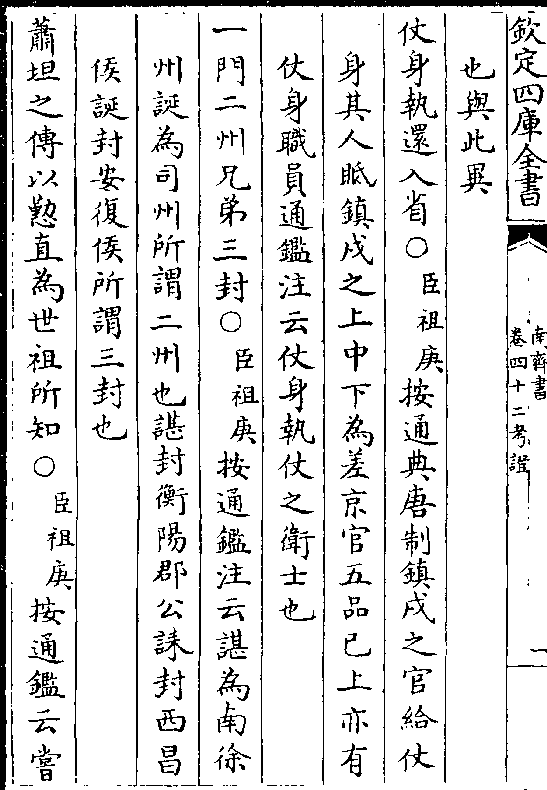 欽定四庫全書
南齊書
卷四十二考證
一
也與此異
仗身執還入省○臣祖庚按通典唐制鎮戍之官給仗
身其人眡鎮戍之上中下為差京官五品已上亦有
仗身職員通鑑注云仗身執仗之衛士也
一門二州兄弟三封○臣祖庚按通鑑注云諶為南徐
州誕為司州所謂二州也諶封衡陽郡公誄封西昌
侯誕封安復侯所謂三封也
蕭坦之傳以懃直為世祖所知○臣祖庚按通鑑云嘗